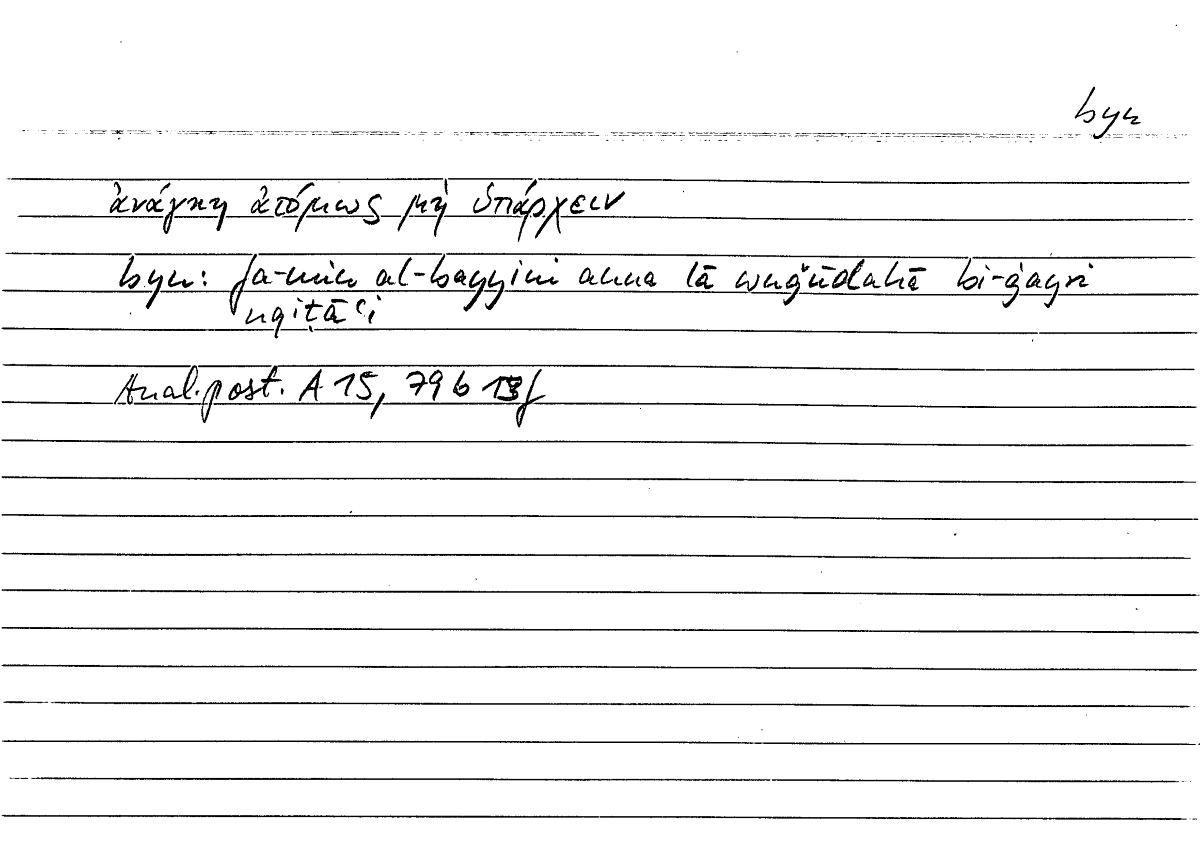 byn
ἀνάγκη ἀτόμως μὴ ὑπάρχειν
byn: fa-min al-bayyini anna lā wuǧūdahā bi-ġayri
nqiṭāʿi
Anal. post. A 15, 79 b 13f